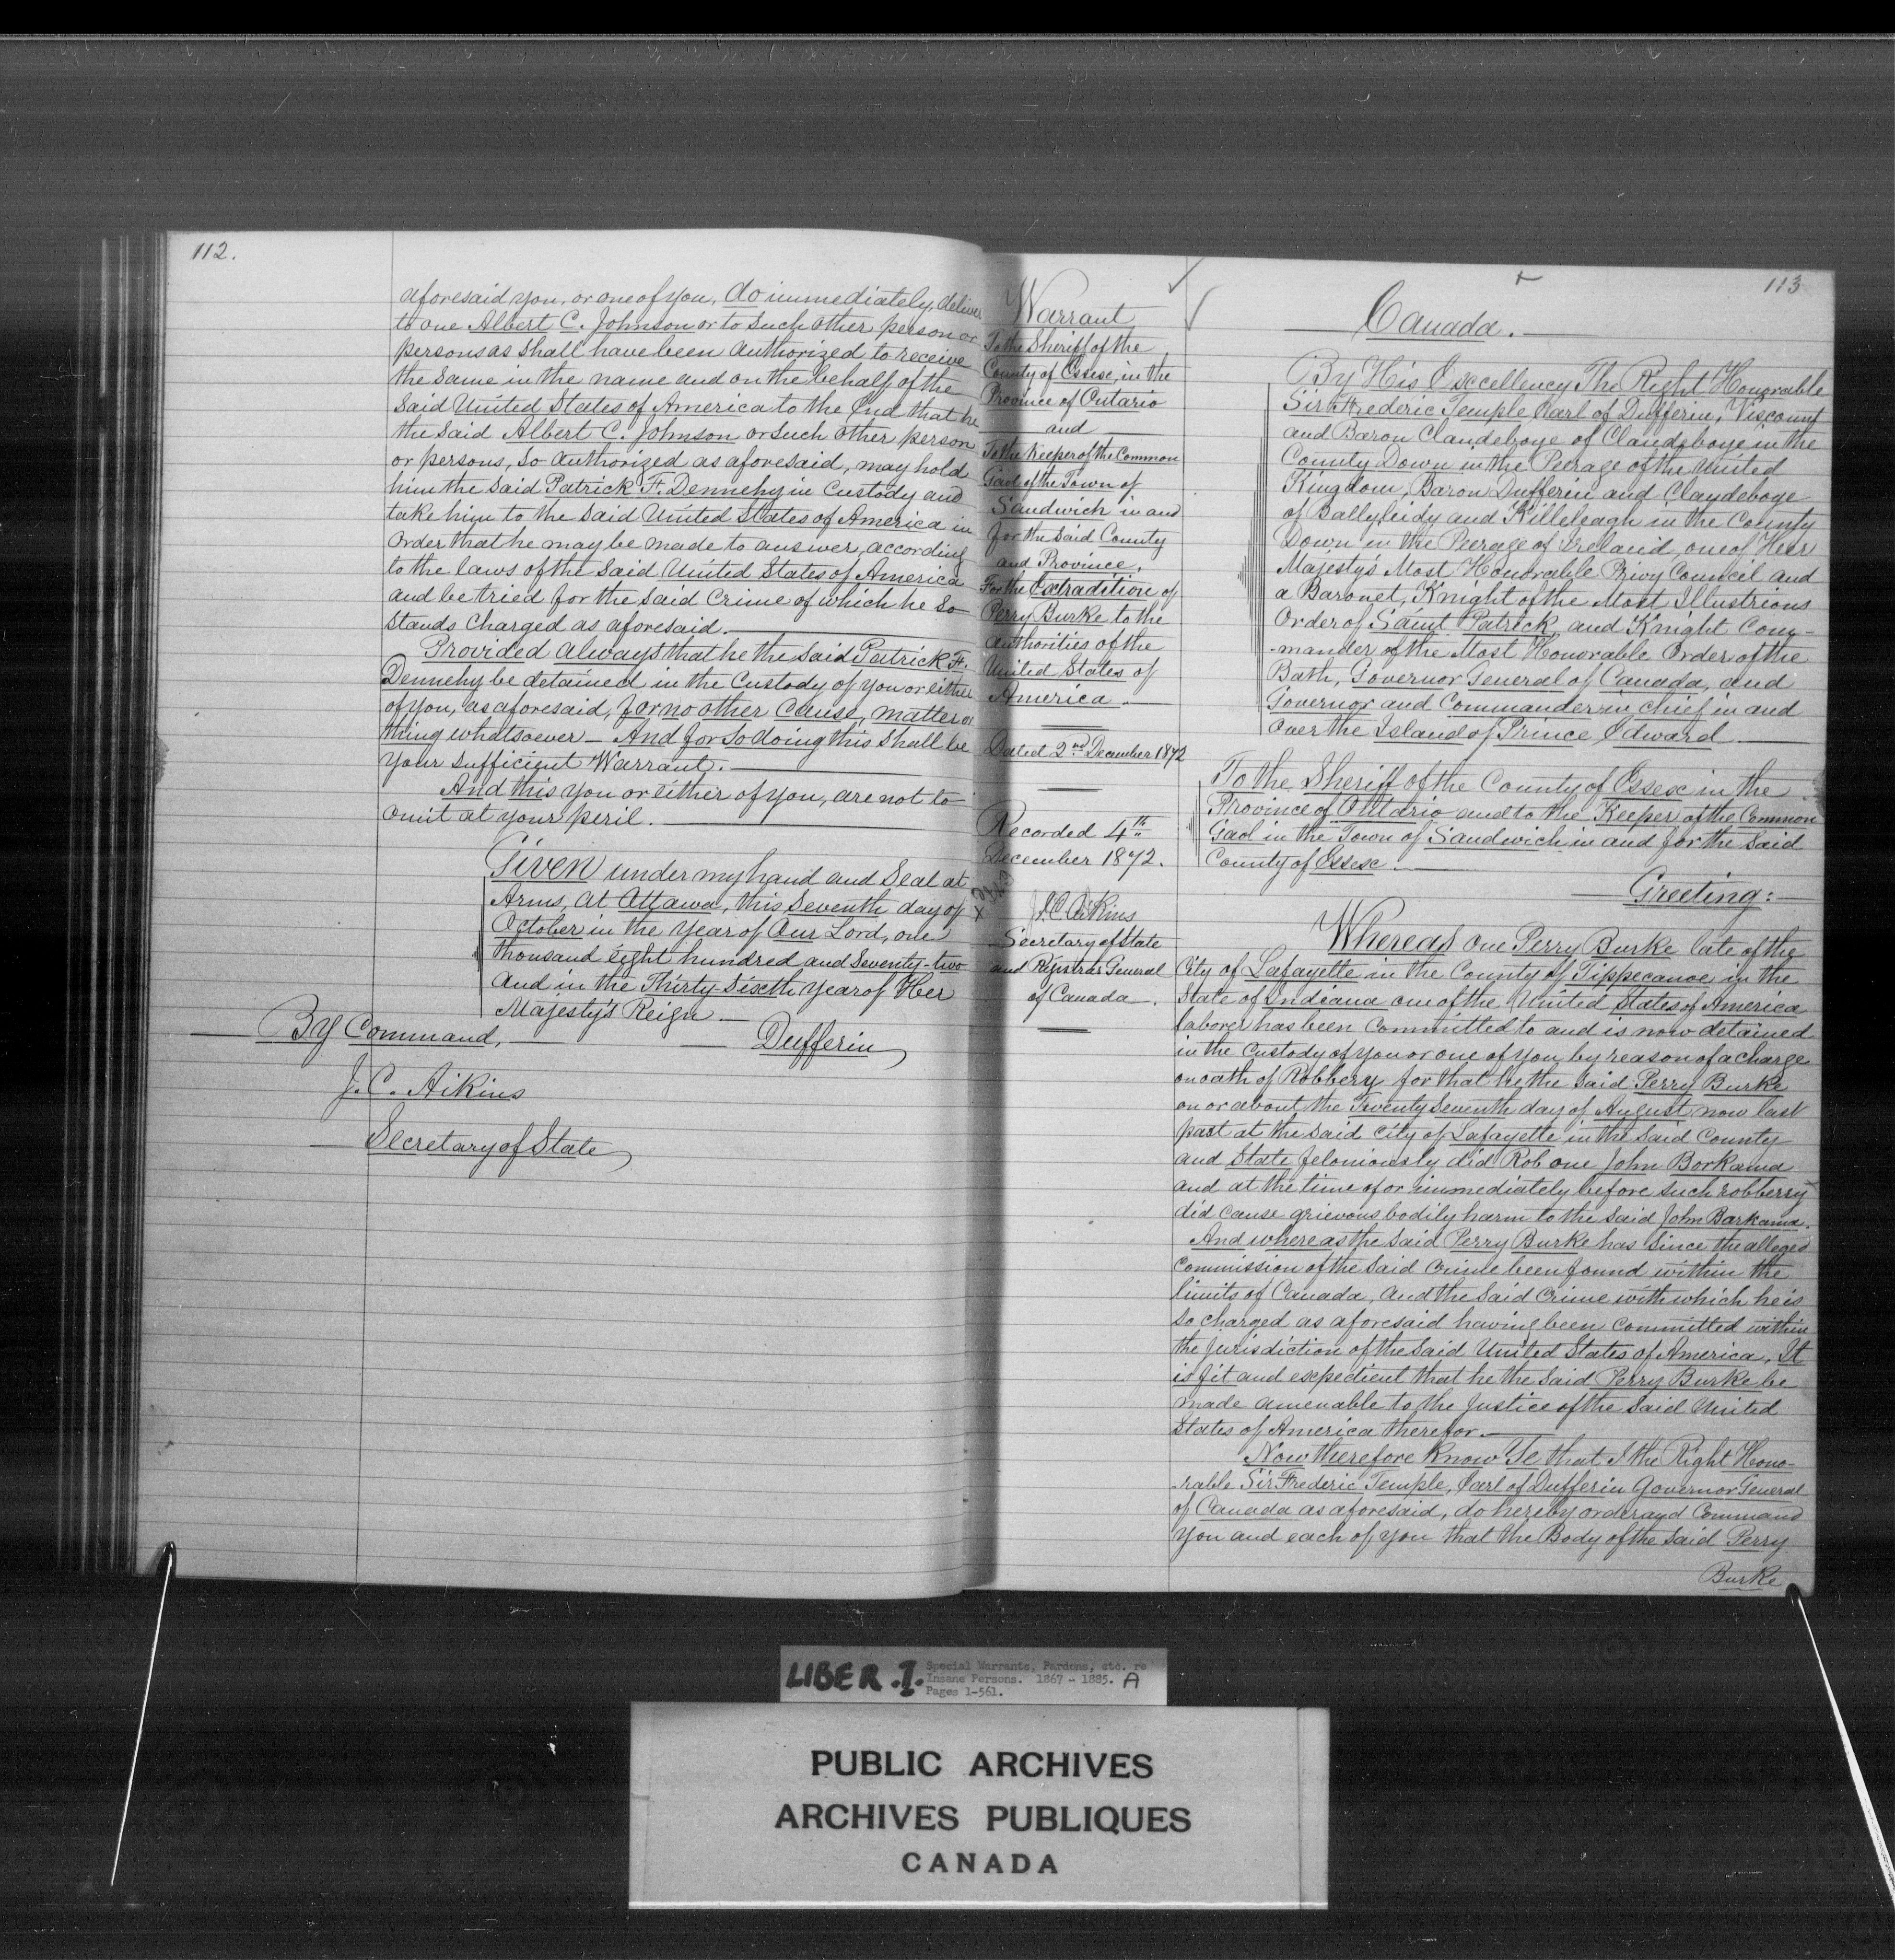 112.
aforesaid you, or one of you, do immediately, deliver
to one Albert C. Johnson or to such other person or
persons as shall have been authorized to receive
the same in the name and on the behalf of the
said United States of America to the End that he
the said Albert C. Johnson or such other person
or persons, so authorized as aforesaid, may hold
him the said Patrick F. Dennehy in custody and
take him to the said United States of America in
order that he may be made to answer, according
to the laws of the said United States of America
and be tried for the said Crime of which he so
stands charged as aforesaid.
Provided always that he the said Patrick F.
Dennehy be detained in the custody of you or either
of you, as aforesaid, for no other cause, matter or
thing whatsoever — And for so doing this shall be
your sufficient Warrant.
And this you or either of you, are not to
omit at your peril.
Given under my hand and Seal at
Arms, at Ottawa, this Seventh day of
October in the year of Our Lord, one
thousand eight hundred and Seventy-two
and in the Thirty-Sixth year of Her
Majesty's Reign —
By Command, — Dufferin
J. C. Aikins
Secretary of State
Warrant
To the Sheriff of the
County of Essex, in the
Province of Ontario
and
To the Keeper of the Common
Gaol of the Town of
Sandwich in and
for the said County
and Province.
For the Extradition of
Perry Burke to the
authorities of the
United States of
America.
Dated 2nd December 1872
Recorded 4th
December 1872.
J.C. Aikins
Secretary of State
and Registrar General
of Canada.
113
Canada.
By His Excellency The Right Honorable
Sir Frederic Temple Earl of Dufferin, Viscount
and Baron Clandeboye of Clandeboye in the
County Down in the Peerage of the United
Kingdom, Baron Dufferin and Claydeboye
of Ballyleidy and Killeleagh in the County
Down in the Peerage of Ireland, one of Her
Majesty's Most Honorable Privy Council and
a Baronet, Knight of the Most Illustrious
Order of Saint Patrick and Knight Com-
-mander of the Most Honorable Order of the
Bath, Governor General of Canada, and
Governor and Commander in Chief in and
over the Island of Prince Edward
To the Sheriff of the County of Essex in the
Province of Ontario and to the Keeper of the Common
Gaol in the Town of Sandwich in and for the said
County of Essex.
Greeting:—
Whereas one Perry Burke late of the
City of Lafayette in the County of Tippecanoe in the
State of Indiana one of the United States of America
laborer has been committed to and is now detained
in the custody of you or one of you by reason of a charge
on oath of Robbery for that he the said Perry Burke
on or about the Twenty Seventh day of August now last
past at the said City of Lafayette in the said County
and State feloniously did Rob one John Borkama
and at the time of or immediately before such robberry
did cause grievous bodily harm to the said John Barkama.
And whereas the said Perry Burke has since the alleged
Commission of the said Crime been found within the
limits of Canada, and the said Crime with which he is
so charged as aforesaid having been committed within
the jurisdiction of the said United States of America, It
is fit and expedient that he the said Perry Burke be
made amenable to the Justice of the said United
States of America therefor.—
Now therefore Know Ye that I the Right Hono-
-rable Sir Frederic Temple, Earl of Dufferin Governor General
of Canada as aforesaid, do hereby order and Command
you and each of you that the Body of the said Perry
Burke
LIBER.I. Special Warrants, Pardons, etc. re
Insane Persons. 1867 - 1885. A
Pages 1-561.
PUBLIC ARCHIVES
ARCHIVES PUBLIQUES
CANADA